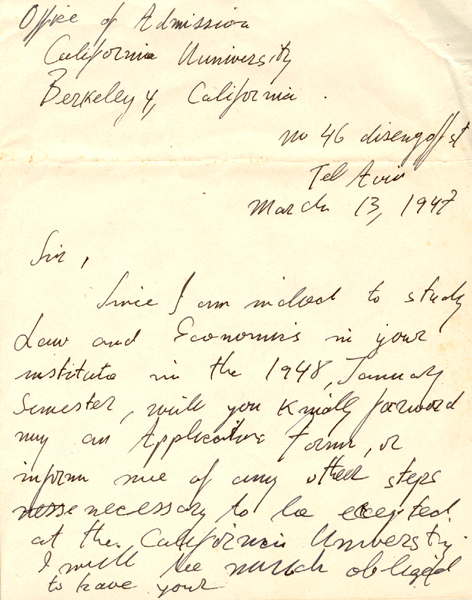 Office of Admission
California Uuniversity
Berkeley 4, California.
no 46 disengoff st
Tel Aviv
March 13, 1947
Sir,
Since I am inclined to study
Law and Economics in your
institute in the 1948, January
Semester, will you kindly forward
my an Application form, or
inform me of any other steps
necessary to be accepted
at the California University.
I will be much obliged
to have your